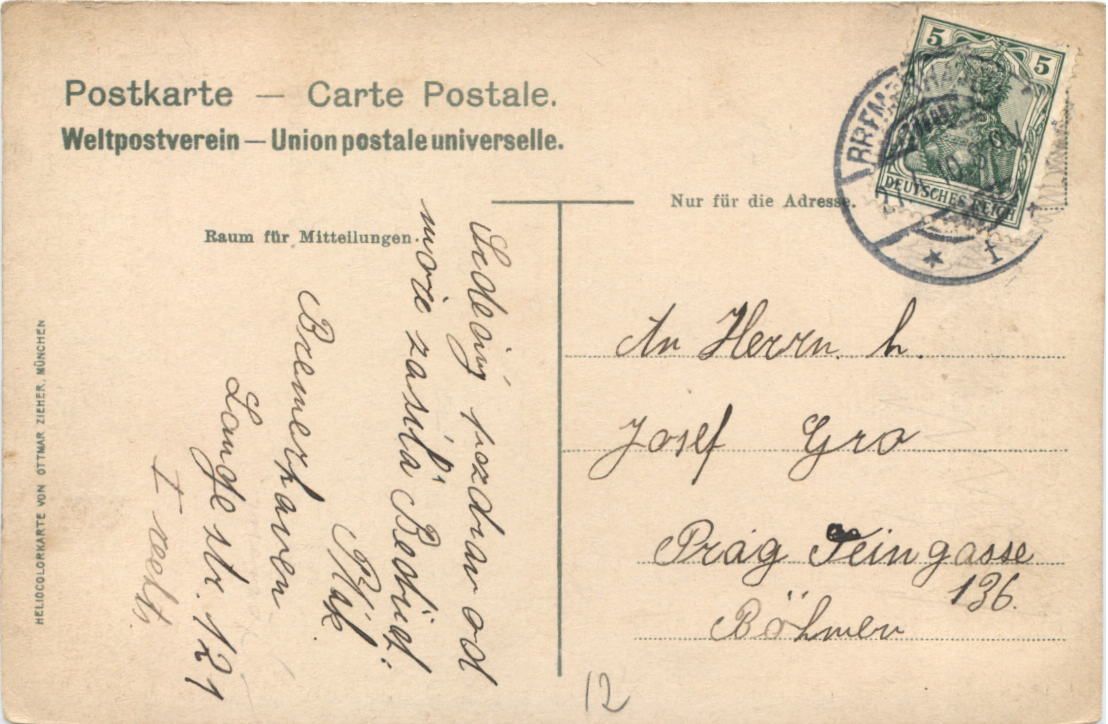 Postkarte — Carte Postale.
Weltpostverein — Union postale universelle.
Nur für die Adresse.
Raum für Mitteilungen.
5 5
DEUTSCHES REICH
BREMERHAVEN
* f
Srdečný pozdrav od
moře zasílá Bedřich
Bremerhaven
Lange str. 121
I
An Herrn. h.
Josef Gro
Prag Teingasse
136.
Böhmen
12
HELIOCOLORKARTE VON OTTMAR ZIEHER, MÜNCHEN